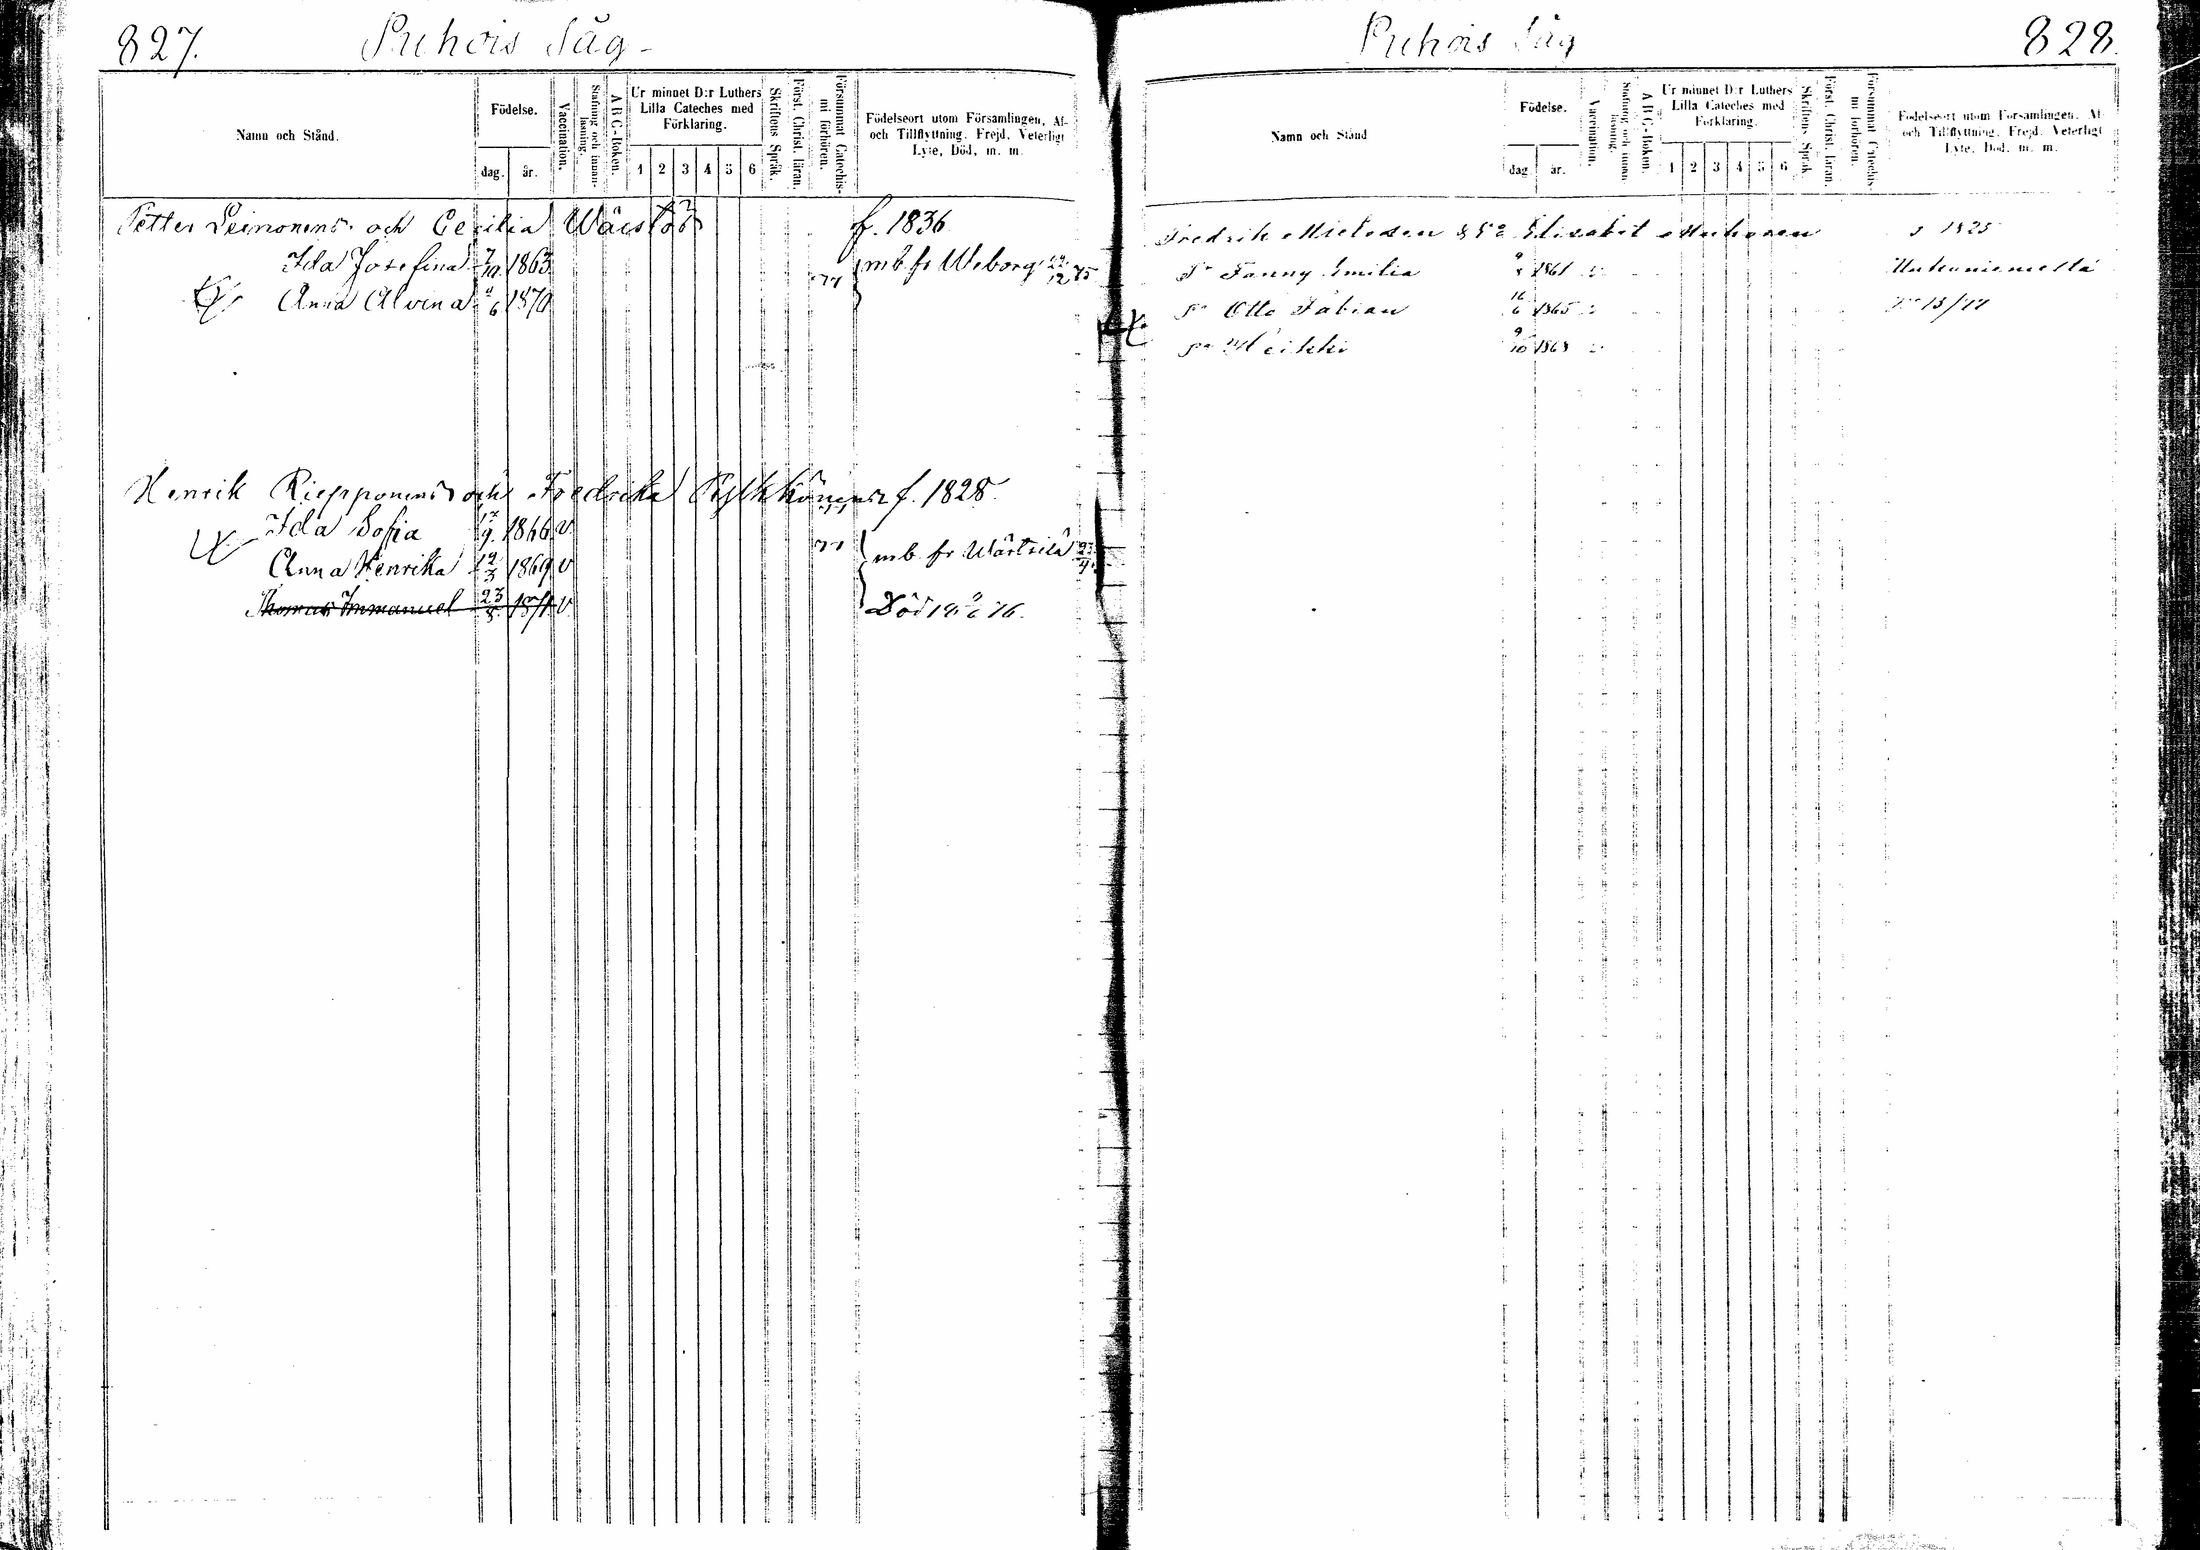 827. Puhois Såg
Namn och Stånd.
Födelse.
dag. år.
Vaccination.
Stafning och innanläsning.
ABC-Boken.
Ur minnet D:r Luthers
Lilla Cateches med
Förklaring.
1 2 3 4 5 6
Skriftens Språk.
Först. Christ. läran.
Försummat Catechismi förhören.
Födelseort utom Församlingen, Af-
och Tillflyttning. Frejd. Veterligt
Lyte, Död, m. m.
Petter och Cecilia f. 1836
Ida Josefina 7/10 1863 77 m b fr Wiborg 12 75
Anna Alvina 6 1870
Henrik och Fredrika f. 1828.
Ida Sofia 9. 1866 v 77
Anna Henrika 12/3 1869 v m b fr Wärtsilä
Thomas Immanuel 23 1871 v Död 76.
Puhois Såg 828.
Namn och Stånd
Födelse.
dag år.
Vaccination.
Stafning och innanläsning.
ABC-Boken
Ur minnet D:r Luthers
Lilla Cateches med
Förklaring.
1 2 3 4 5 6
Skriftens Språk
Först. Christ. läran.
Försummat Catechismi förhören.
Födelseort utom Församlingen. Af
och Tillflyttning. Frejd. Veterligt
Lyte. Död. m. m.
Fredrik Elisabet Muhonen s 1825
Fanny Emilia 1861
Otto Fabian 16/6 1865 13/77
Heikki 9/10 1868